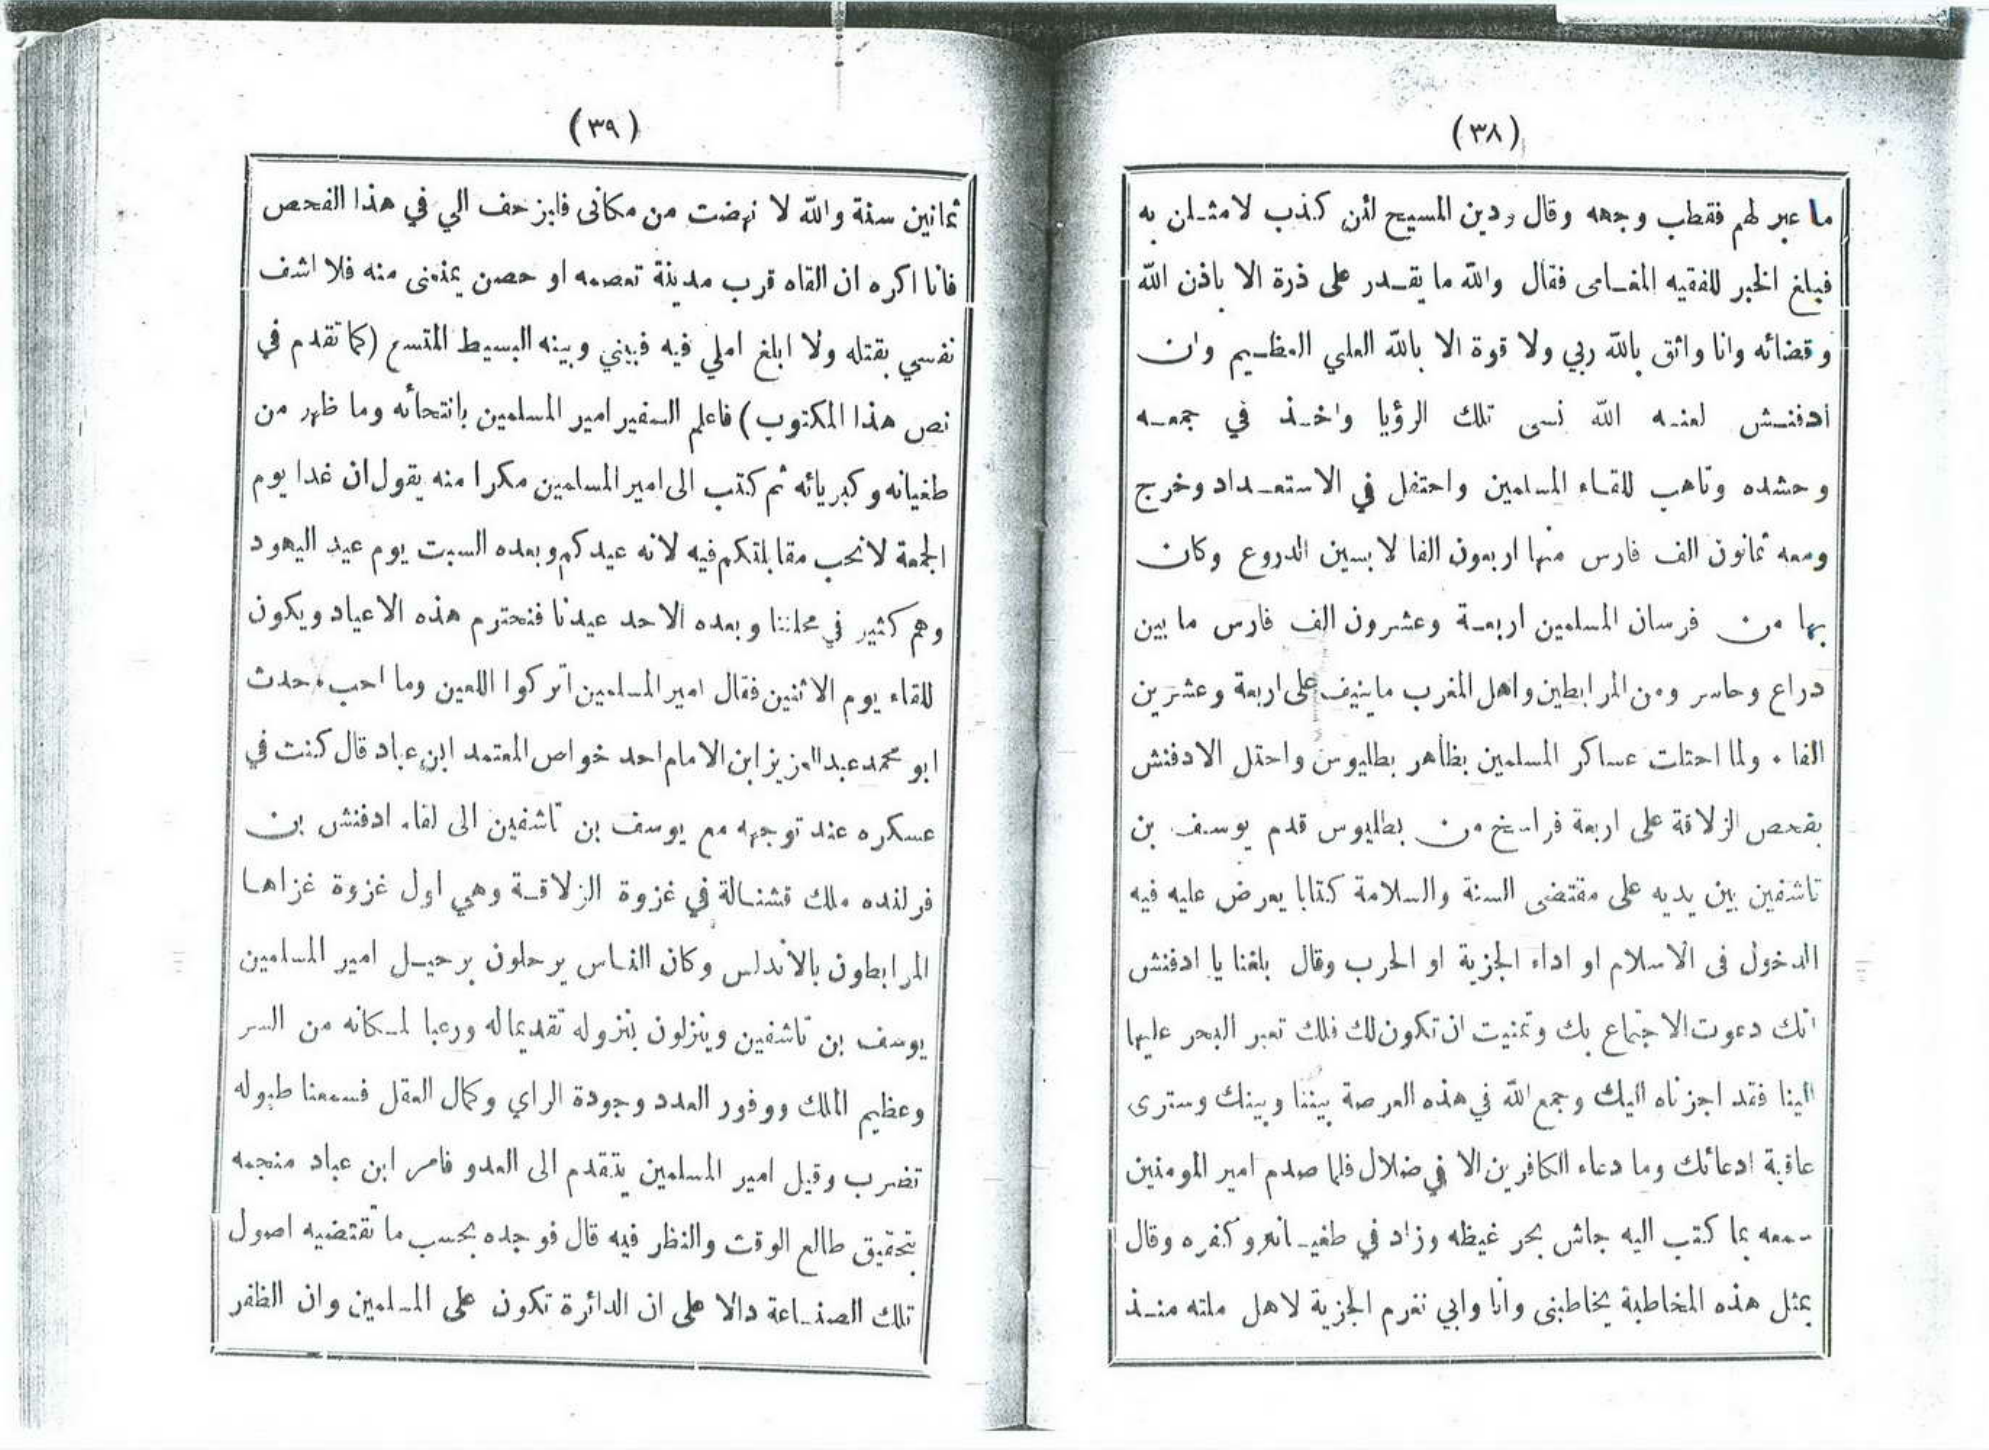 (٣٨)
ما عبر لهم فقطب وجهه وقال ودين المسيح لئن كذب لامثلن به
فبلغ الخبر للفقيه المغامى فقال والله ما يقدر على ذرة الا باذن الله
وقضائه وانا واثق بالله ربي ولا قوة الا بالله العلي العظيم وان
ادفنش لعنه الله نسى تلك الرؤيا واخذ في جمعه
وحشده وتاهب للقاء المسلمين واحتفل في الاستعداد وخرج
ومعه ثمانون الف فارس منها اربعون الفا لابسين الدروع وكان
بها من فرسان المسلمين اربعة وعشرون الف فارس ما بين
دراع وحاسر ومن المرابطين واهل المغرب ماينيف على اربعة وعشرين
الفا . ولما احتلت عساكر المسلمين بظاهر بطليوس واحتل الادفنش
بفحص الزلاقة على اربعة فراسخ من بطليوس قدم يوسف بن
تاشفين بين يديه على مقتضى السنة والسلامة كتابا يعرض عليه فيه
الدخول فى الاسلام او اداء الجزية او الحرب وقال بلغنا يا ادفنش
انك دعوت الاجتماع بك وتمنيت ان تكون لك فلك تعبر البحر عليها
الينا فقد اجزناه اليك وجمع الله في هذه العرصة بيننا وبينك وسترى
عاقبة ادعائك وما دعاء الكافرين الا في ضلال فلما صدم امير المومنين
سمعه بما كتب اليه جاش بحر غيظه وزاد في طغيانه وكفره وقال
بمثل هذه المخاطبة يخاطبنى وانا وابي نغرم الجزية لاهل ملته منذ
(٣٩)
ثمانين سنة والله لا نهضت من مكانى فليزحف الي في هذا الفحص
فانا اكره ان القاه قرب مدينة تعصمه او حصن يمنعنى منه فلا اشف
نفسي بقتله ولا ابلغ املي فيه فبيني وبينه البسيط المتسع (كما تقدم في
نص هذا المكتوب) فاعلم السفير امير المسلمين بانتحائه وما ظهر من
طغيانه وكبريائه ثم كتب الى امير المسلمين مكرا منه يقول ان غدا يوم
الجمعة لانحب مقابلتكم فيه لانه عيدكم وبعده السبت يوم عيد اليهود
وهم كثير في محلتنا وبعده الاحد عيدنا فنحترم هذه الاعياد ويكون
للقاء يوم الاثنين فقال امير المسلمين اتركوا اللعين وما احب . حدث
ابو محمد عبد العزيز ابن الامام احد خواص المعتمد ابن عباد قال كنت في
عسكره عند توجهه مع يوسف بن تاشفين الى لقاء ادفنش بن
فرلنده ملك قشتالة في غزوة الزلاقة وهي اول غزوة غزاها
المرابطون بالاندلس وكان الناس يرحلون برحيل امير المسلمين
يوسف بن تاشفين وينزلون بنزوله تقديما له ورعيا لمكانه من السر
وعظيم الملك ووفور العدد وجودة الراي وكمال العقل فسمعنا طبوله
تضرب وقيل امير المسلمين يتقدم الى العدو فامر ابن عباد منجمه
بتحقيق طالع الوقت والنظر فيه قال فوجده بحسب ما تقتضيه اصول
تلك الصناعة دالا على ان الدائرة تكون على المسلمين وان الظفر